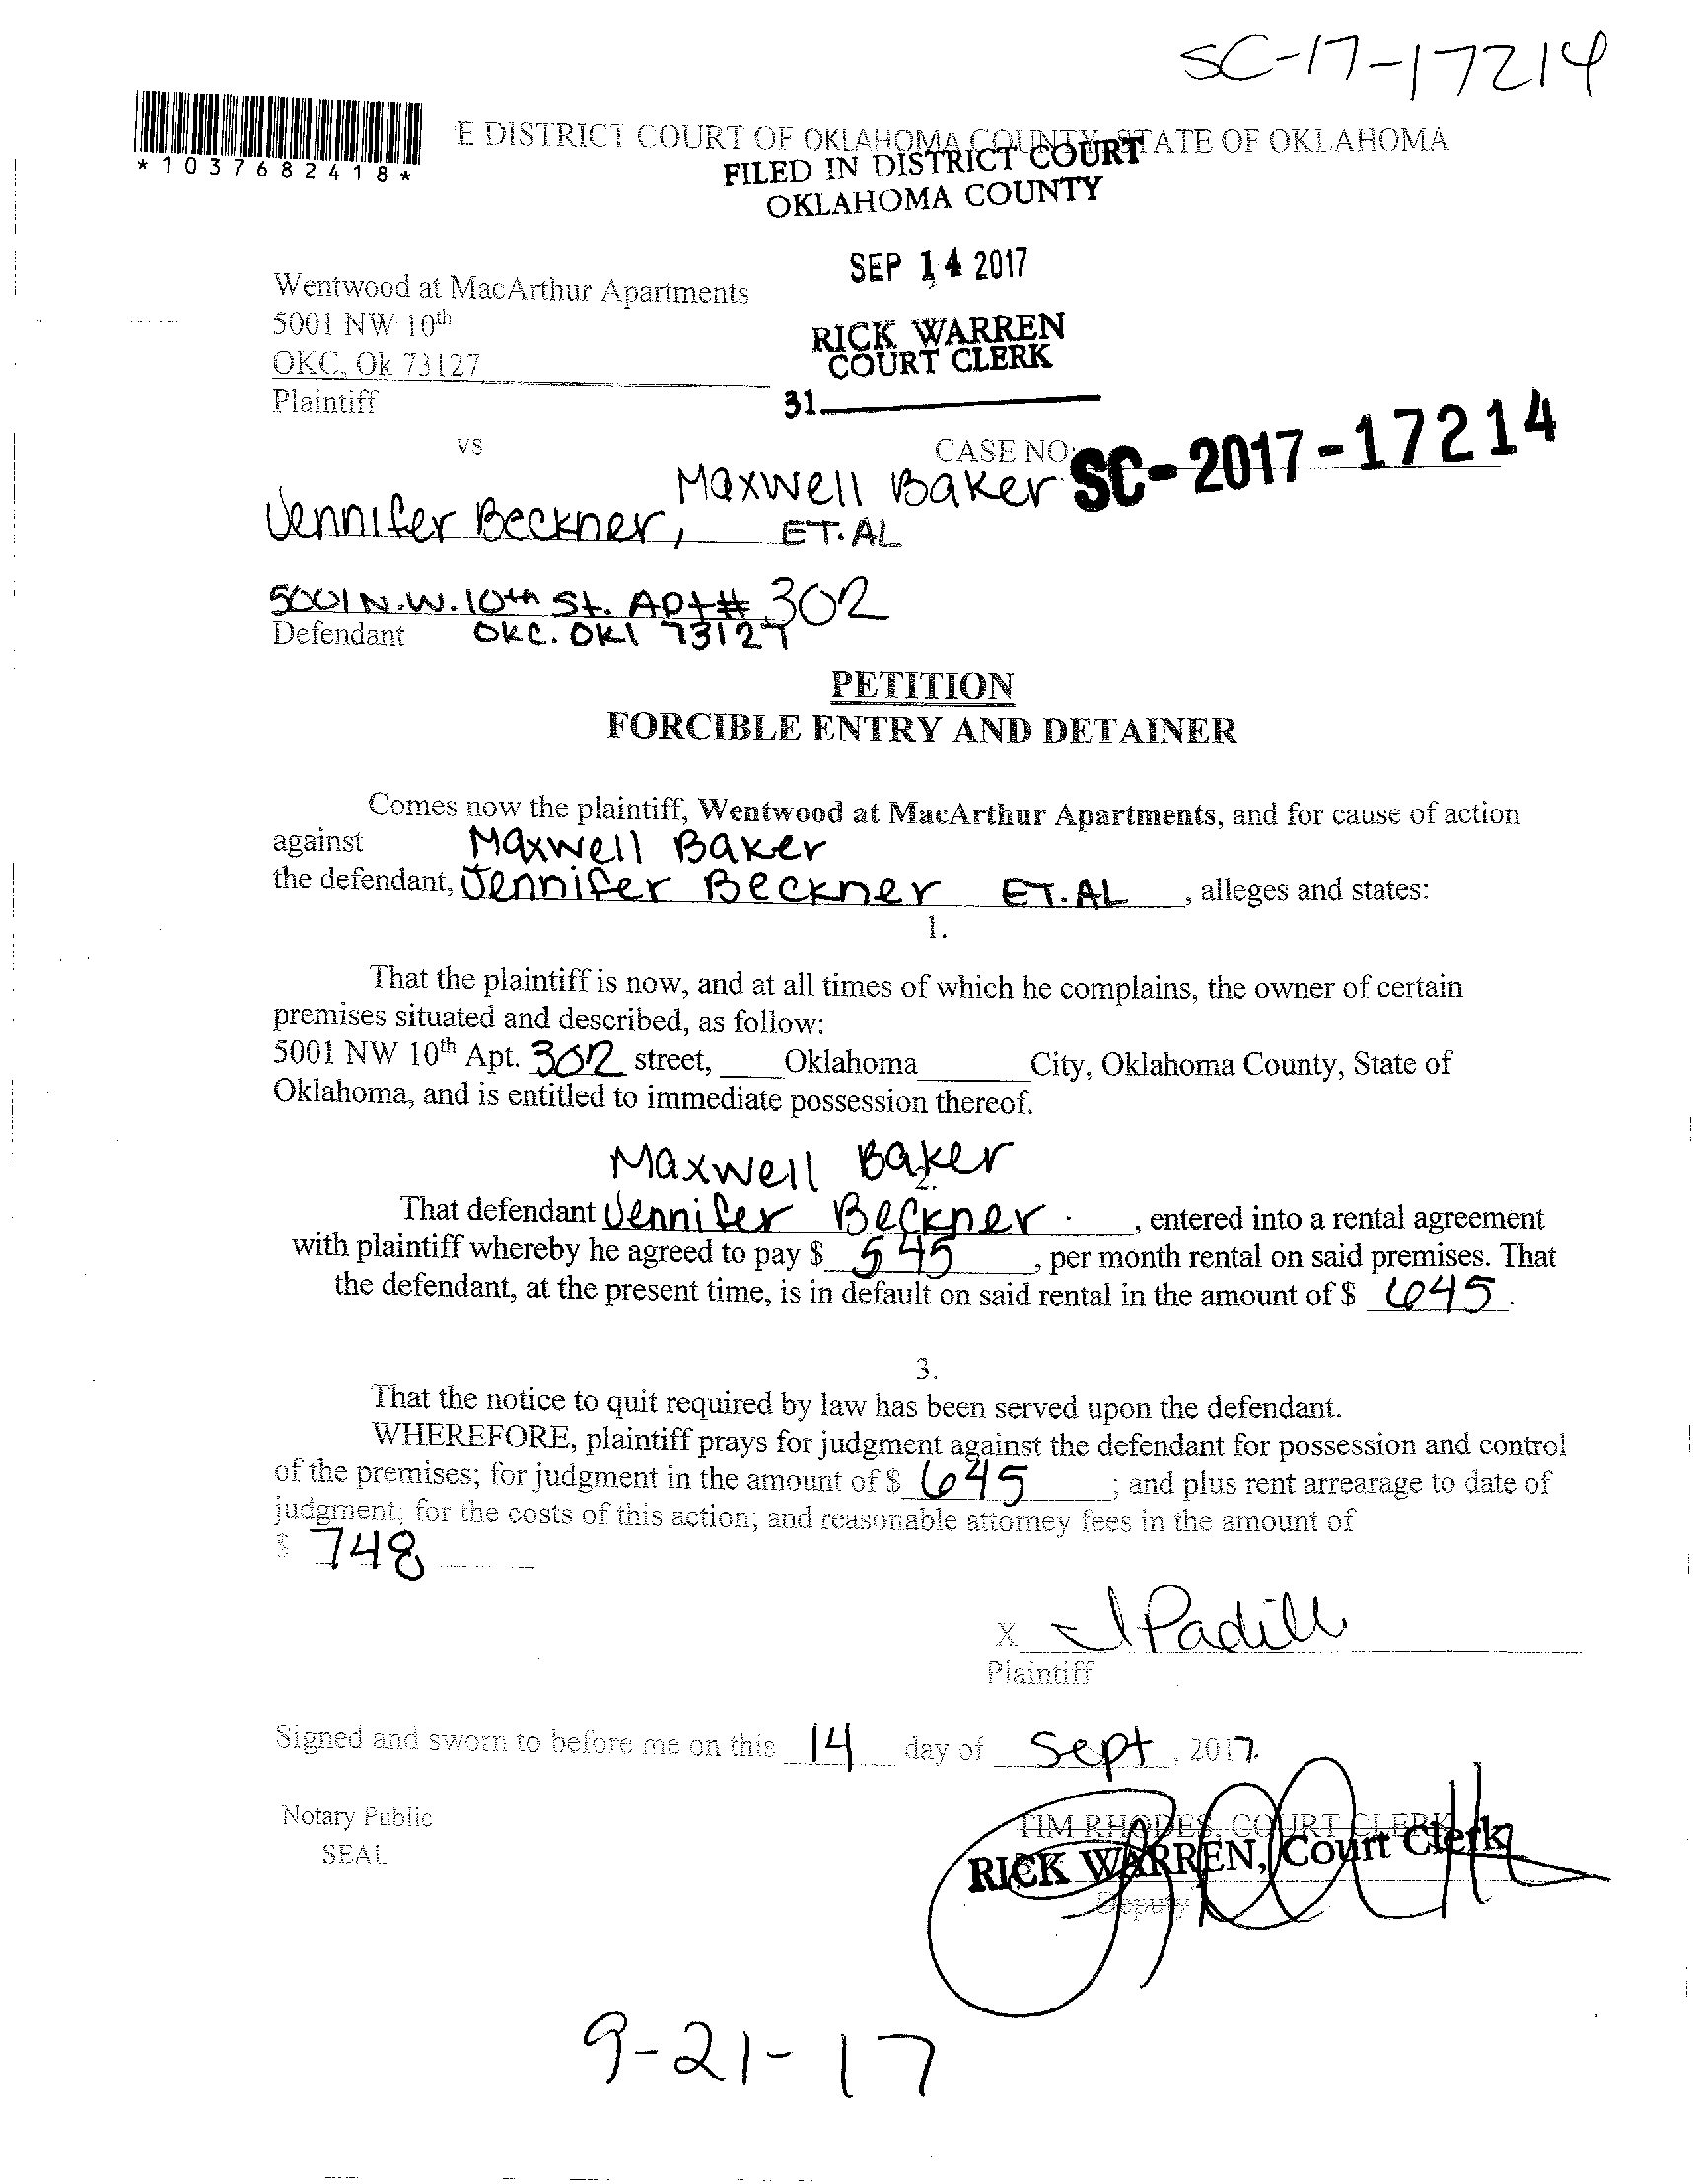 SC-17-17214
*1037682418*
E DISTRICT COURT OF OKLAHOMA COUNTY STATE OF OKLAHOMA
FILED IN DISTRICT COURT
OKLAHOMA COUNTY
SEP 14 2017
Wentwood at MacArthur Apartments
5001 NW 10th
RICK WARREN
COURT CLERK
OKC, Ok 73127
Plaintiff
31
vs
CASE NO: SC-2017-17214
Maxwell Baker
Jennifer Beckner, ET.AL
5001 N.W. 10th St. Apt# 302
Defendant OKC. OKl 73127
PETITION
FORCIBLE ENTRY AND DETAINER
Comes now the plaintiff, Wentwood at MacArthur Apartments, and for cause of action
against Maxwell Baker
the defendant, Jennifer Beckner ET.AL , alleges and states:
1.
That the plaintiff is now, and at all times of which he complains, the owner of certain
premises situated and described, as follow:
5001 NW 10th Apt. 302 street, Oklahoma City, Oklahoma County, State of
Oklahoma, and is entitled to immediate possession thereof.
Maxwell Baker
2.
That defendant Jennifer Beckner , entered into a rental agreement
with plaintiff whereby he agreed to pay $ 545 , per month rental on said premises. That
the defendant, at the present time, is in default on said rental in the amount of $ 645.
3.
That the notice to quit required by law has been served upon the defendant.
WHEREFORE, plaintiff prays for judgment against the defendant for possession and control
of the premises; for judgment in the amount of $ 645 ; and plus rent arrearage to date of
judgment; for the costs of this action; and reasonable attorney fees in the amount of
$ 748
X JPadill
Plaintiff
Signed and sworn to before me on this 14 day of Sept , 2017.
Notary Public
SEAL
TIM RHODES, COURT CLERK
RICK WARREN, Court Clerk
Deputy
9-21-17